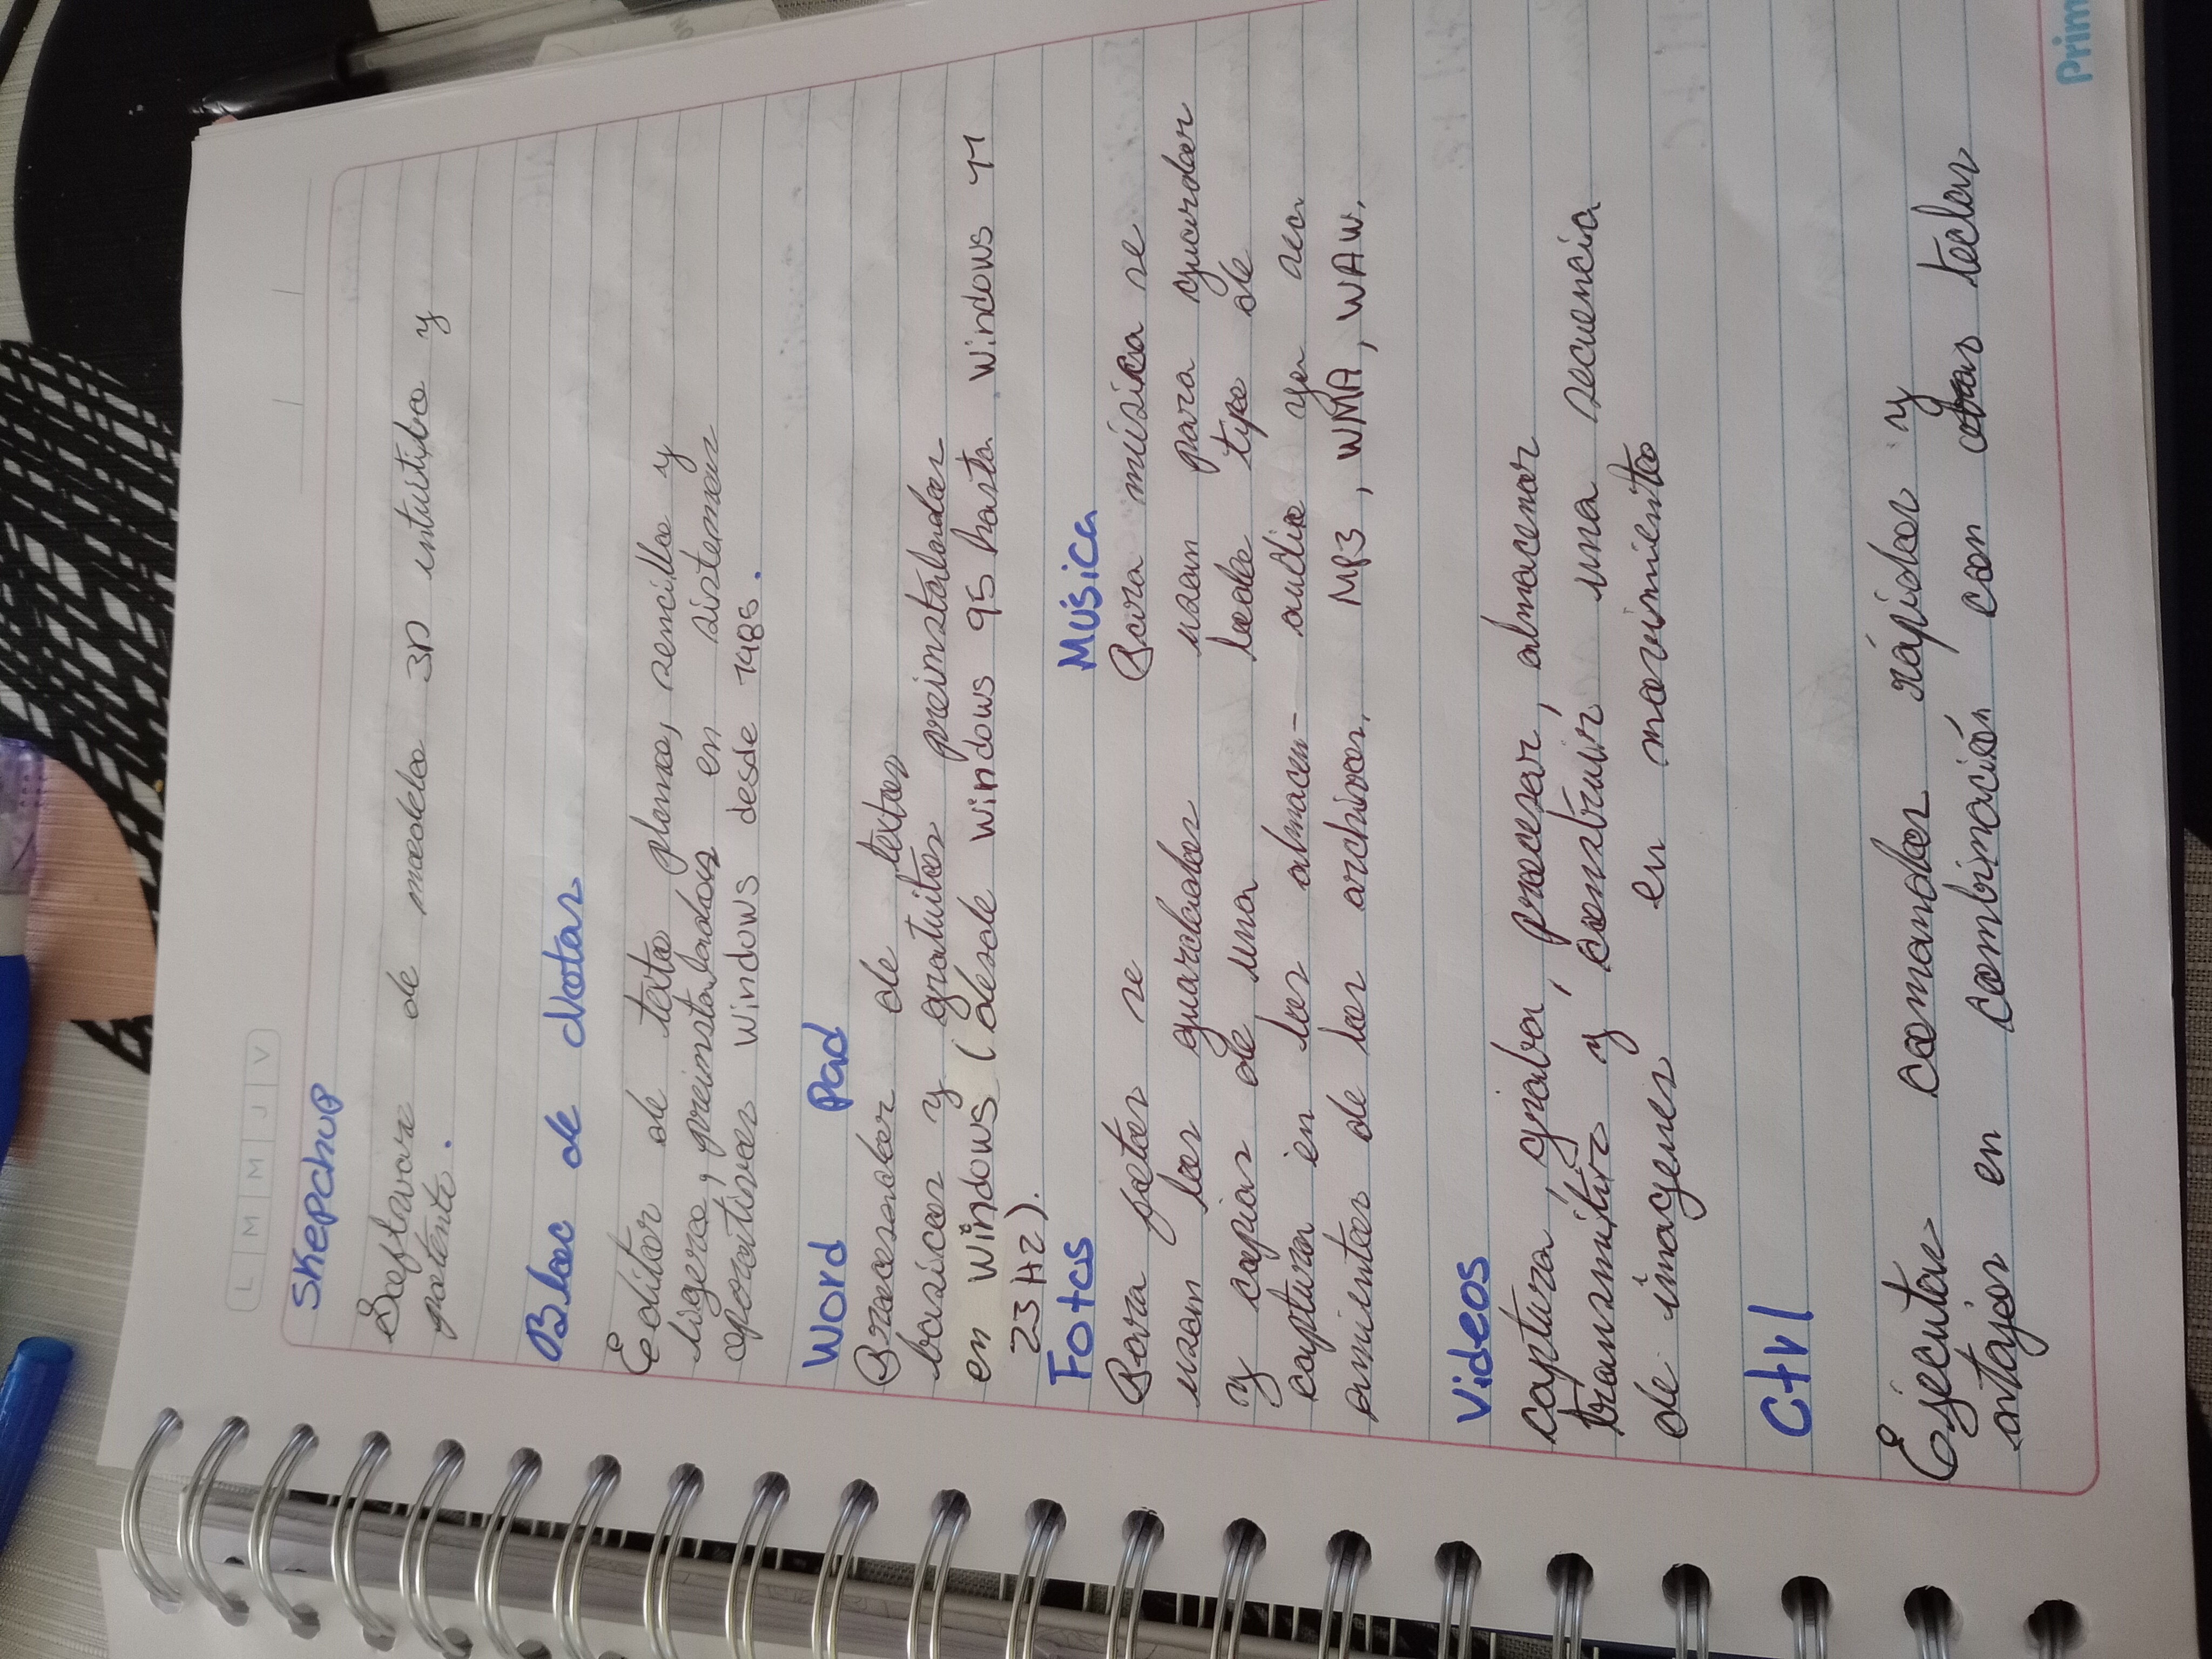 L M M J V
SKepchuP
Software de modelo 3D intuitibo y
potente.
Bloc de Notas
Editor de texto plano, sencillo y
ligero, preinstalados en sistemas
oporativos Windows desde 1985.
Word Pad
Procesador de textos
basicos y gratuitos preinstalados
en Windows (desde Windows 95 hasta Windows 11
23H2).
Fotos
Para fotos se
usan los guardados
y copias de una
captura en los almacen-
amientos de los archivos.
Música
Para música se
usan para guardar
todo tipo de
audio ya sea
MP3, WMA, WAW.
Videos
captura, graba, procesar, almacenar
transmitir y construir una secuencia
de imagenes en movimiento
Ctrl
Ejecutar comandos rápidos y
atajos en combinación con otras teclas
Prim